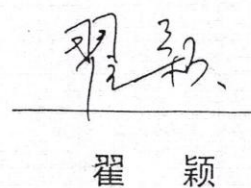 翟颖
翟 颖